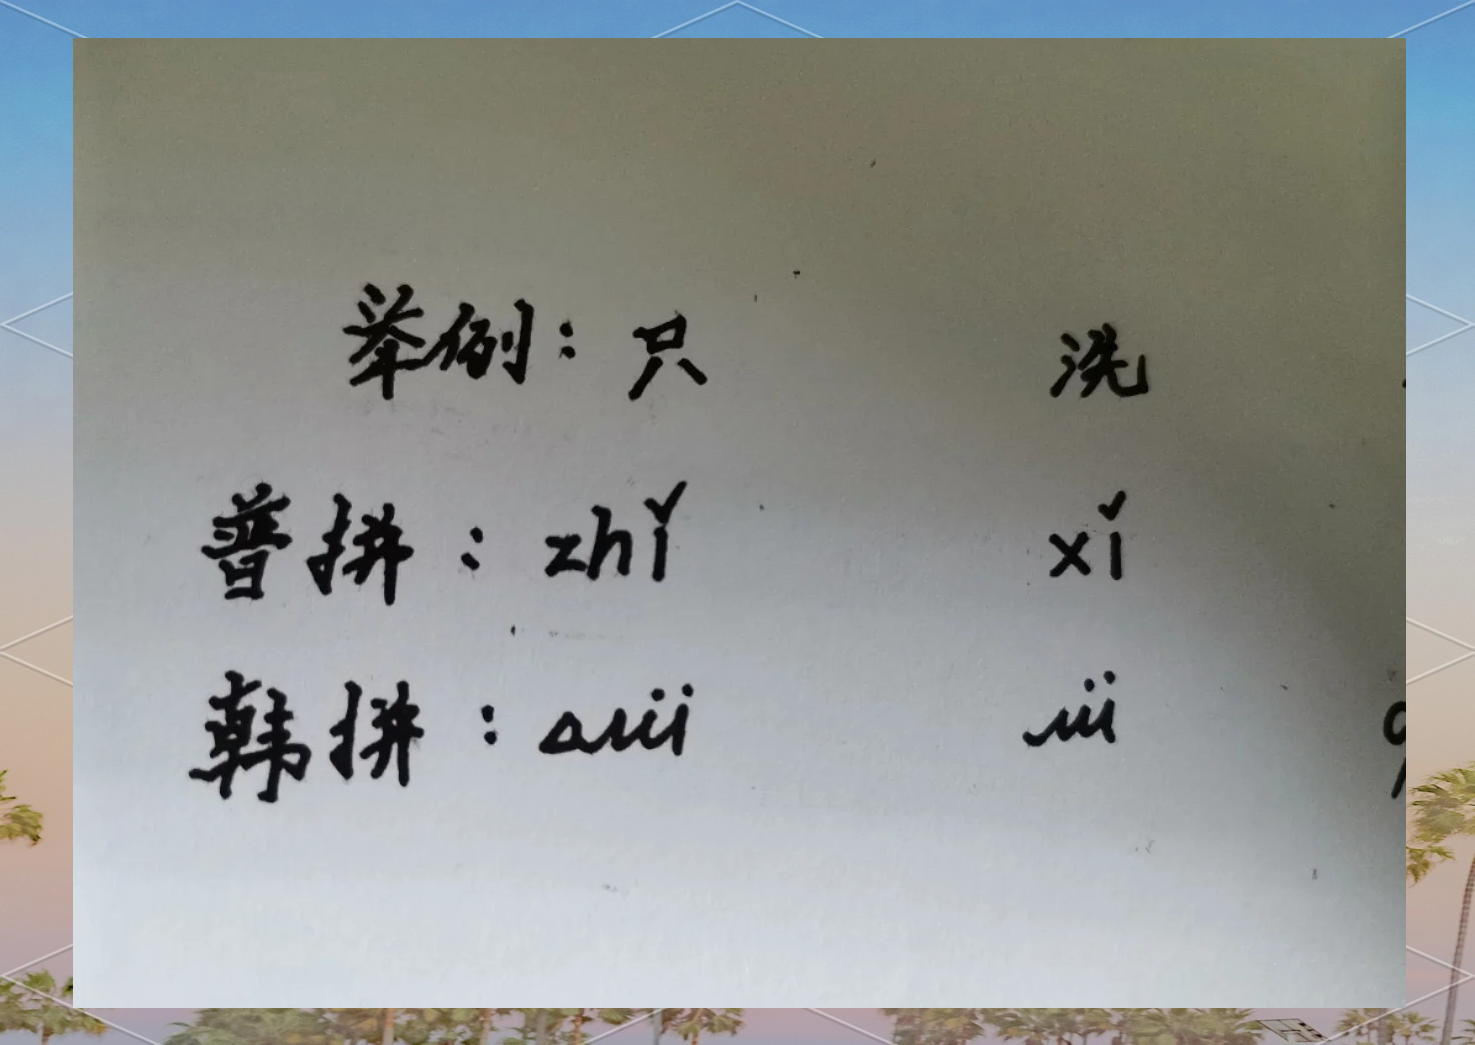 举例：只 洗
普拼：zhǐ xǐ
韩拼：